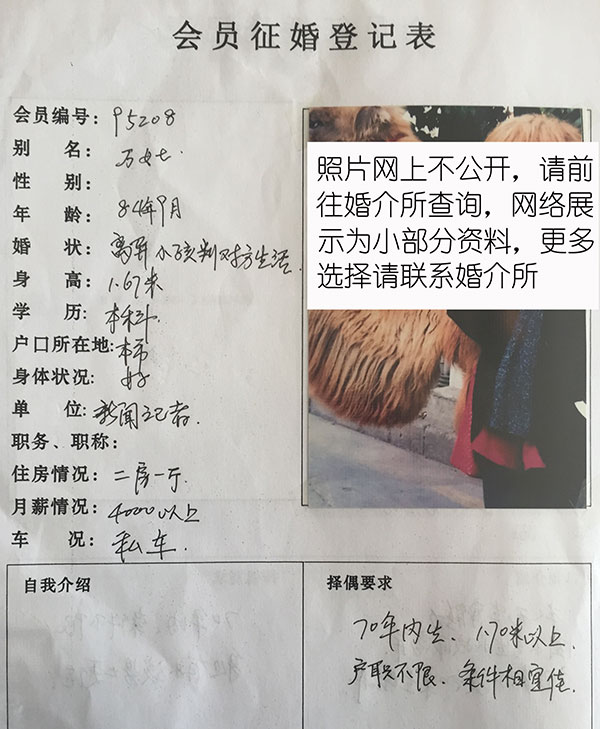 会员征婚登记表
会员编号：95208
别 名：万女士
性 别：
年 龄：84年9月
婚 状：离异小孩判对方生活.
身 高：1.67米
学 历：本科.
户口所在地：本市
身体状况：好
单 位：新闻记者.
职务、职称：
住房情况：二房一厅.
月薪情况：4000以上
车 况：私车.
照片网上不公开，请前
往婚介所查询，网络展
示为小部分资料，更多
选择请联系婚介所
自我介绍
择偶要求
70年内生、1.70米以上.
户职不限、条件相宜佳.